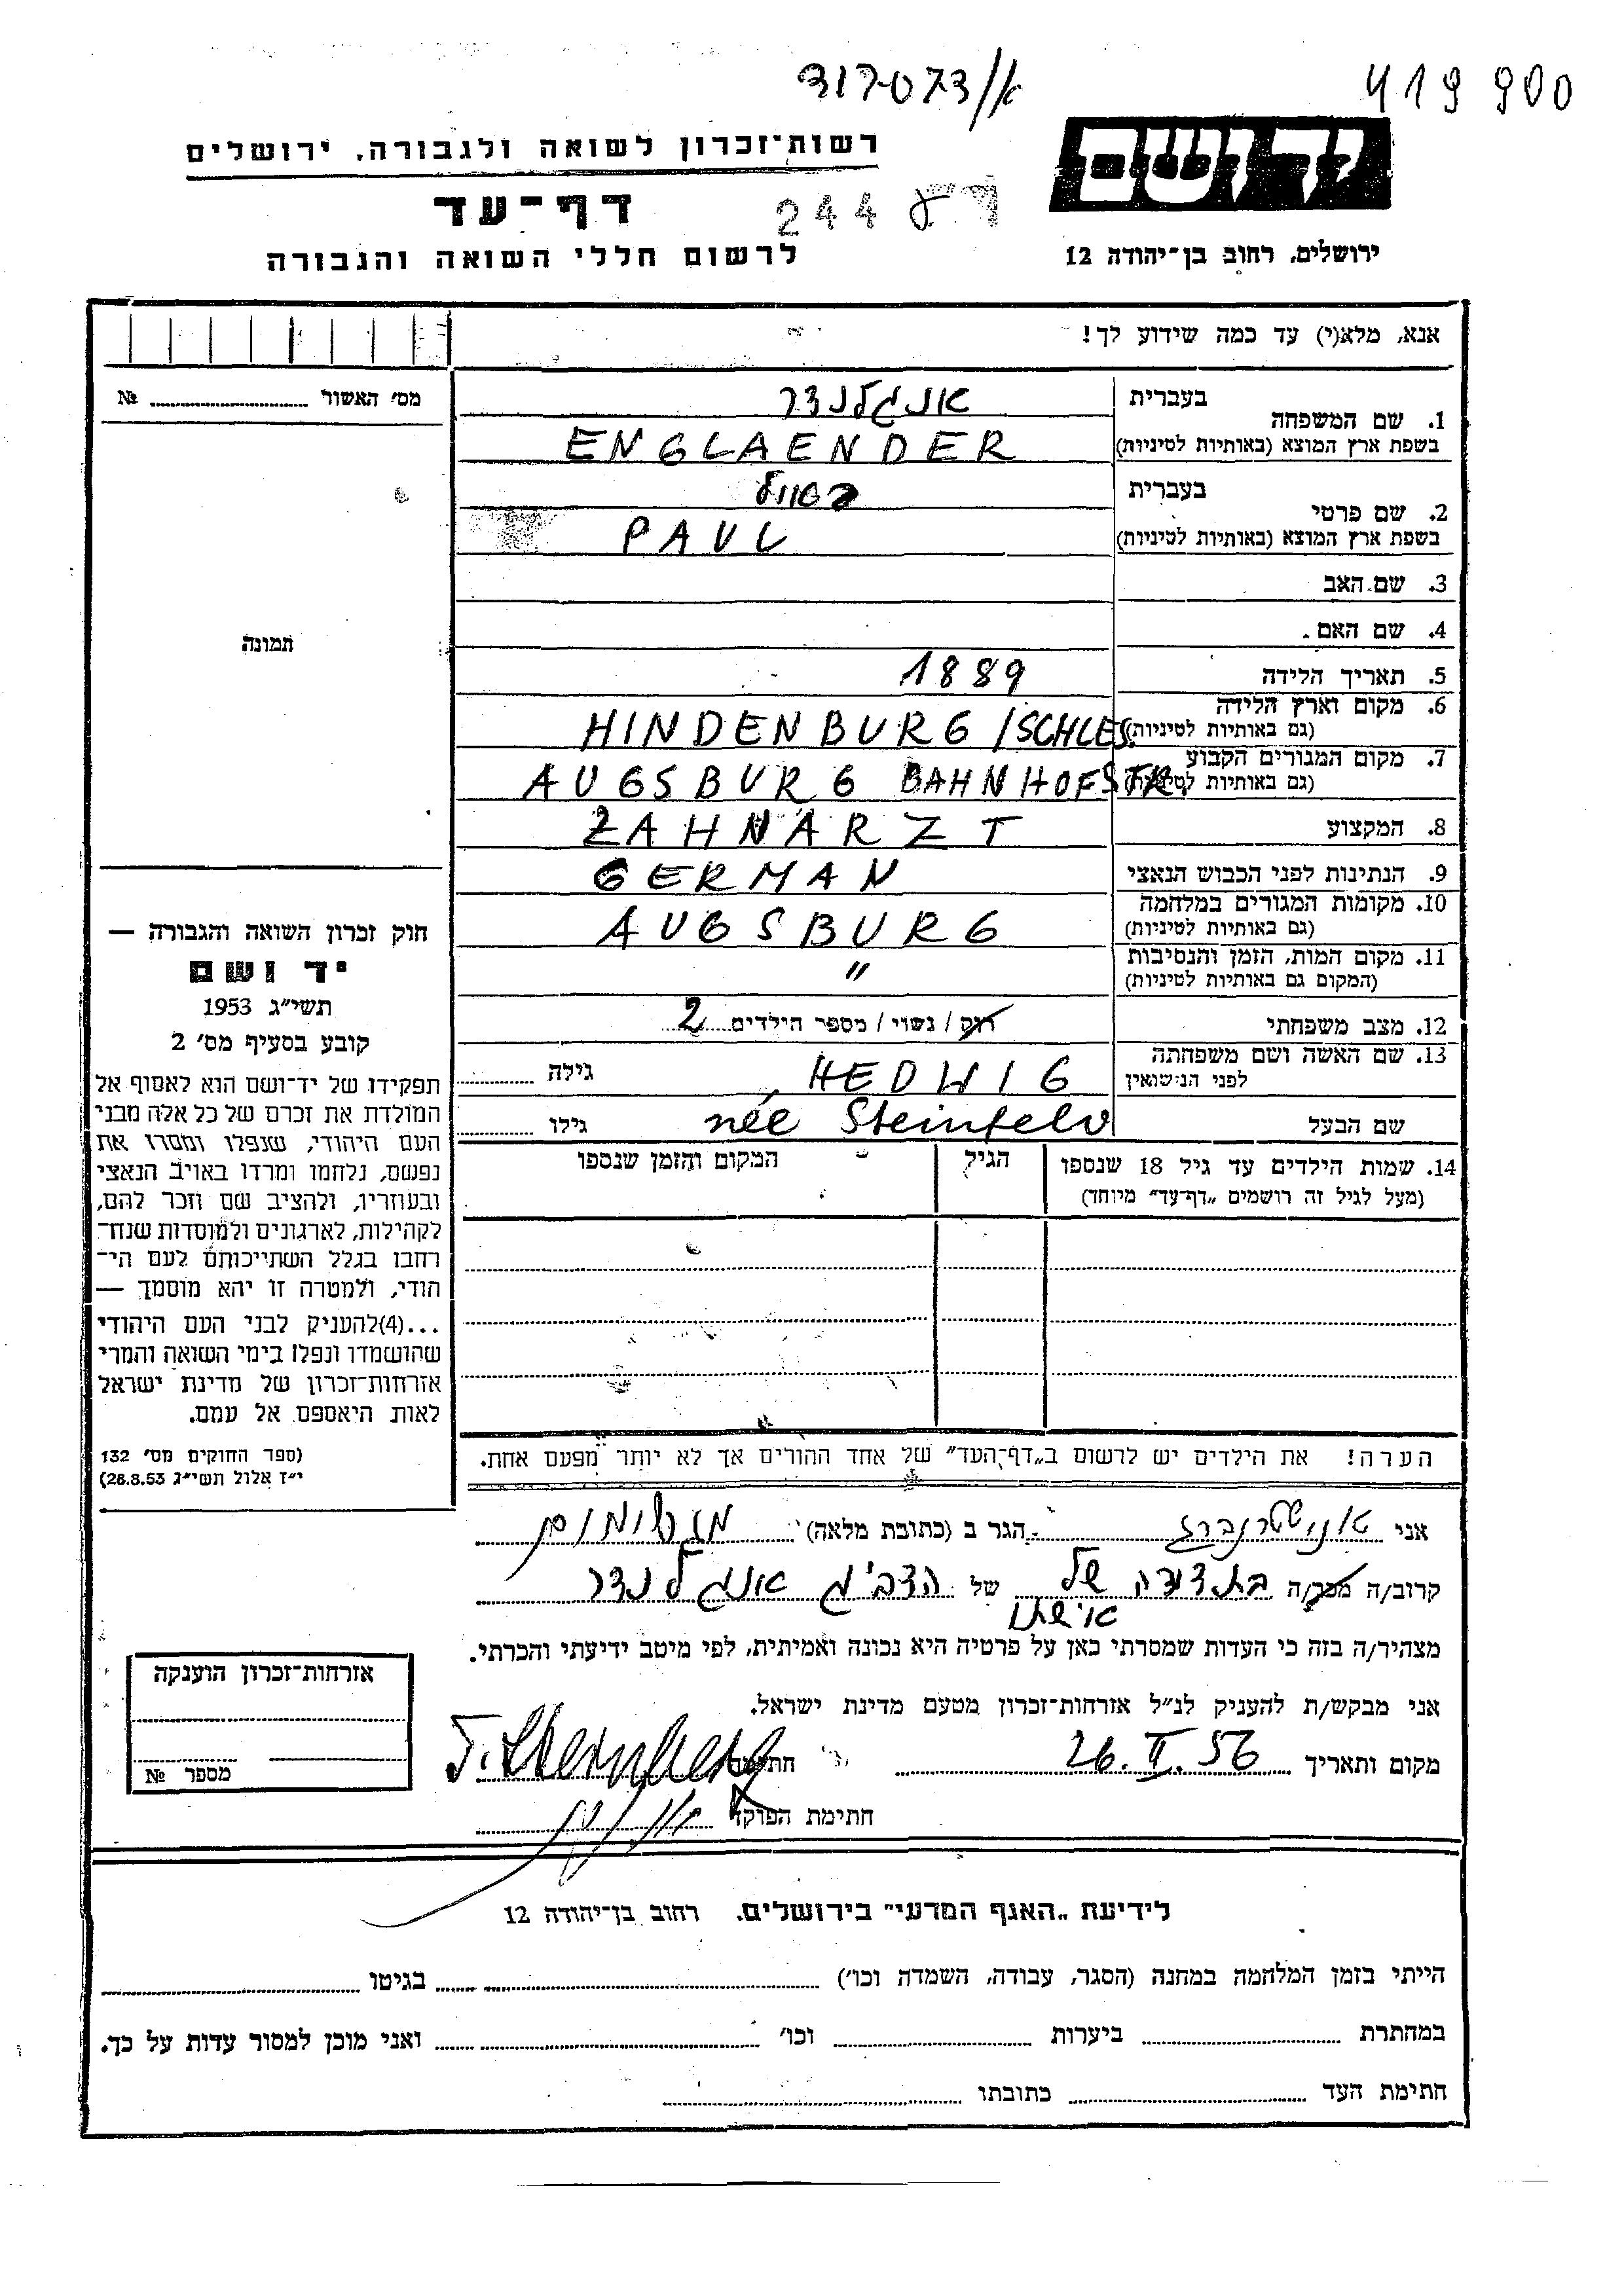 419 900
יד ושם
ירושלים, רחוב בן־יהודה 12
רשות־זכרון לשואה ולגבורה, ירושלים
דף־עד
244
לרשום חללי השואה והגבורה
אנא, מלא(י) עד כמה שידוע לך!
1. שם המשפחה
בעברית אנגלנדר
בשפת ארץ המוצא (באותיות לטיניות) ENGLAENDER
2. שם פרטי
בעברית
בשפת ארץ המוצא (באותיות לטיניות) PAUL
3. שם האב
4. שם האם
5. תאריך הלידה 1889
6. מקום וארץ הלידה
(גם באותיות לטיניות) HINDENBURG / SCHLES.
7. מקום המגורים הקבוע
(גם באותיות לטיניות) AUGSBURG BAHNHOFSTR.
8. המקצוע ZAHNARZT
9. הנתינות לפני הכבוש הנאצי GERMAN
10. מקומות המגורים במלחמה
(גם באותיות לטיניות) AUGSBURG
11. מקום המות, הזמן והנסיבות
(המקום גם באותיות לטיניות) "
12. מצב משפחתי רוק / נשוי / מספר הילדים 2
13. שם האשה ושם משפחתה
לפני הנישואין HEDWIG גילה
שם הבעל née Steinfeld גילו
14. שמות הילדים עד גיל 18 שנספו הגיל המקום והזמן שנספו
(מעל לגיל זה רושמים „דף־עד" מיוחד)
הערה! את הילדים יש לרשום ב„דף־העד" של אחד ההורים אך לא יותר מפעם אחת.
מס' האשור №
תמונה
חוק זכרון השואה והגבורה —
יד ושם
תשי"ג 1953
קובע בסעיף מס' 2
תפקידו של יד־ושם הוא לאסוף אל
המולדת את זכרם של כל אלה מבני
העם היהודי, שנפלו ומסרו את
נפשם, נלחמו ומרדו באויב הנאצי
ובעוזריו, ולהציב שם וזכר להם,
לקהילות, לארגונים ולמוסדות שנח־
רחבו בגלל השתייכותם לעם הי־
הודי, ולמטרה זו יהא מוסמך —
...(4)להעניק לבני העם היהודי
שהושמדו ונפלו בימי השואה והמרי
אזרחות־זכרון של מדינת ישראל
לאות היאספם אל עמם.
(ספר החוקים מס' 132
י"ז אלול תשי"ג 28.8.53)
אני שטרנברג הגר ב (כתובת מלאה)
קרוב/ה מכר/ה בת דודה של של אנגלנדר
אישתו
מצהיר/ה בזה כי העדות שמסרתי כאן על פרטיה היא נכונה ואמיתית, לפי מיטב ידיעתי והכרתי.
אני מבקש/ת להעניק לנ"ל אזרחות־זכרון מטעם מדינת ישראל.
מקום ותאריך 26. II. 56 חתימה Sternberg
חתימת הפוקד
אזרחות־זכרון הוענקה
מספר №
לידיעת „האגף המדעי" בירושלים. רחוב בן־יהודה 12
הייתי בזמן המלחמה במחנה (הסגר, עבודה, השמדה וכו') בגיטו
במחתרת ביערות וכו' ואני מוכן למסור עדות על כך.
חתימת העד כתובתו